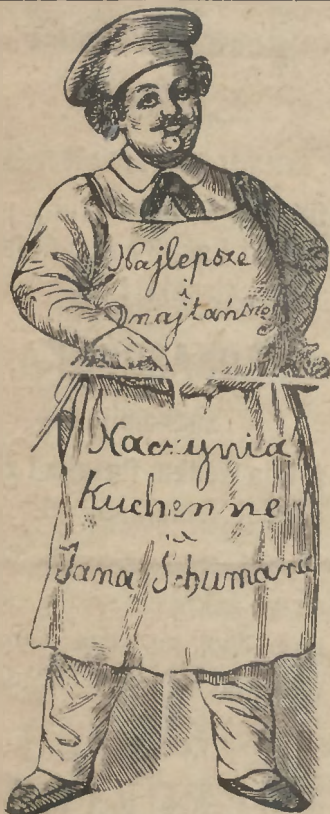 Najlepsze
i
najtańsze
Naczynia
Kuchenne
u
Jana Schumana